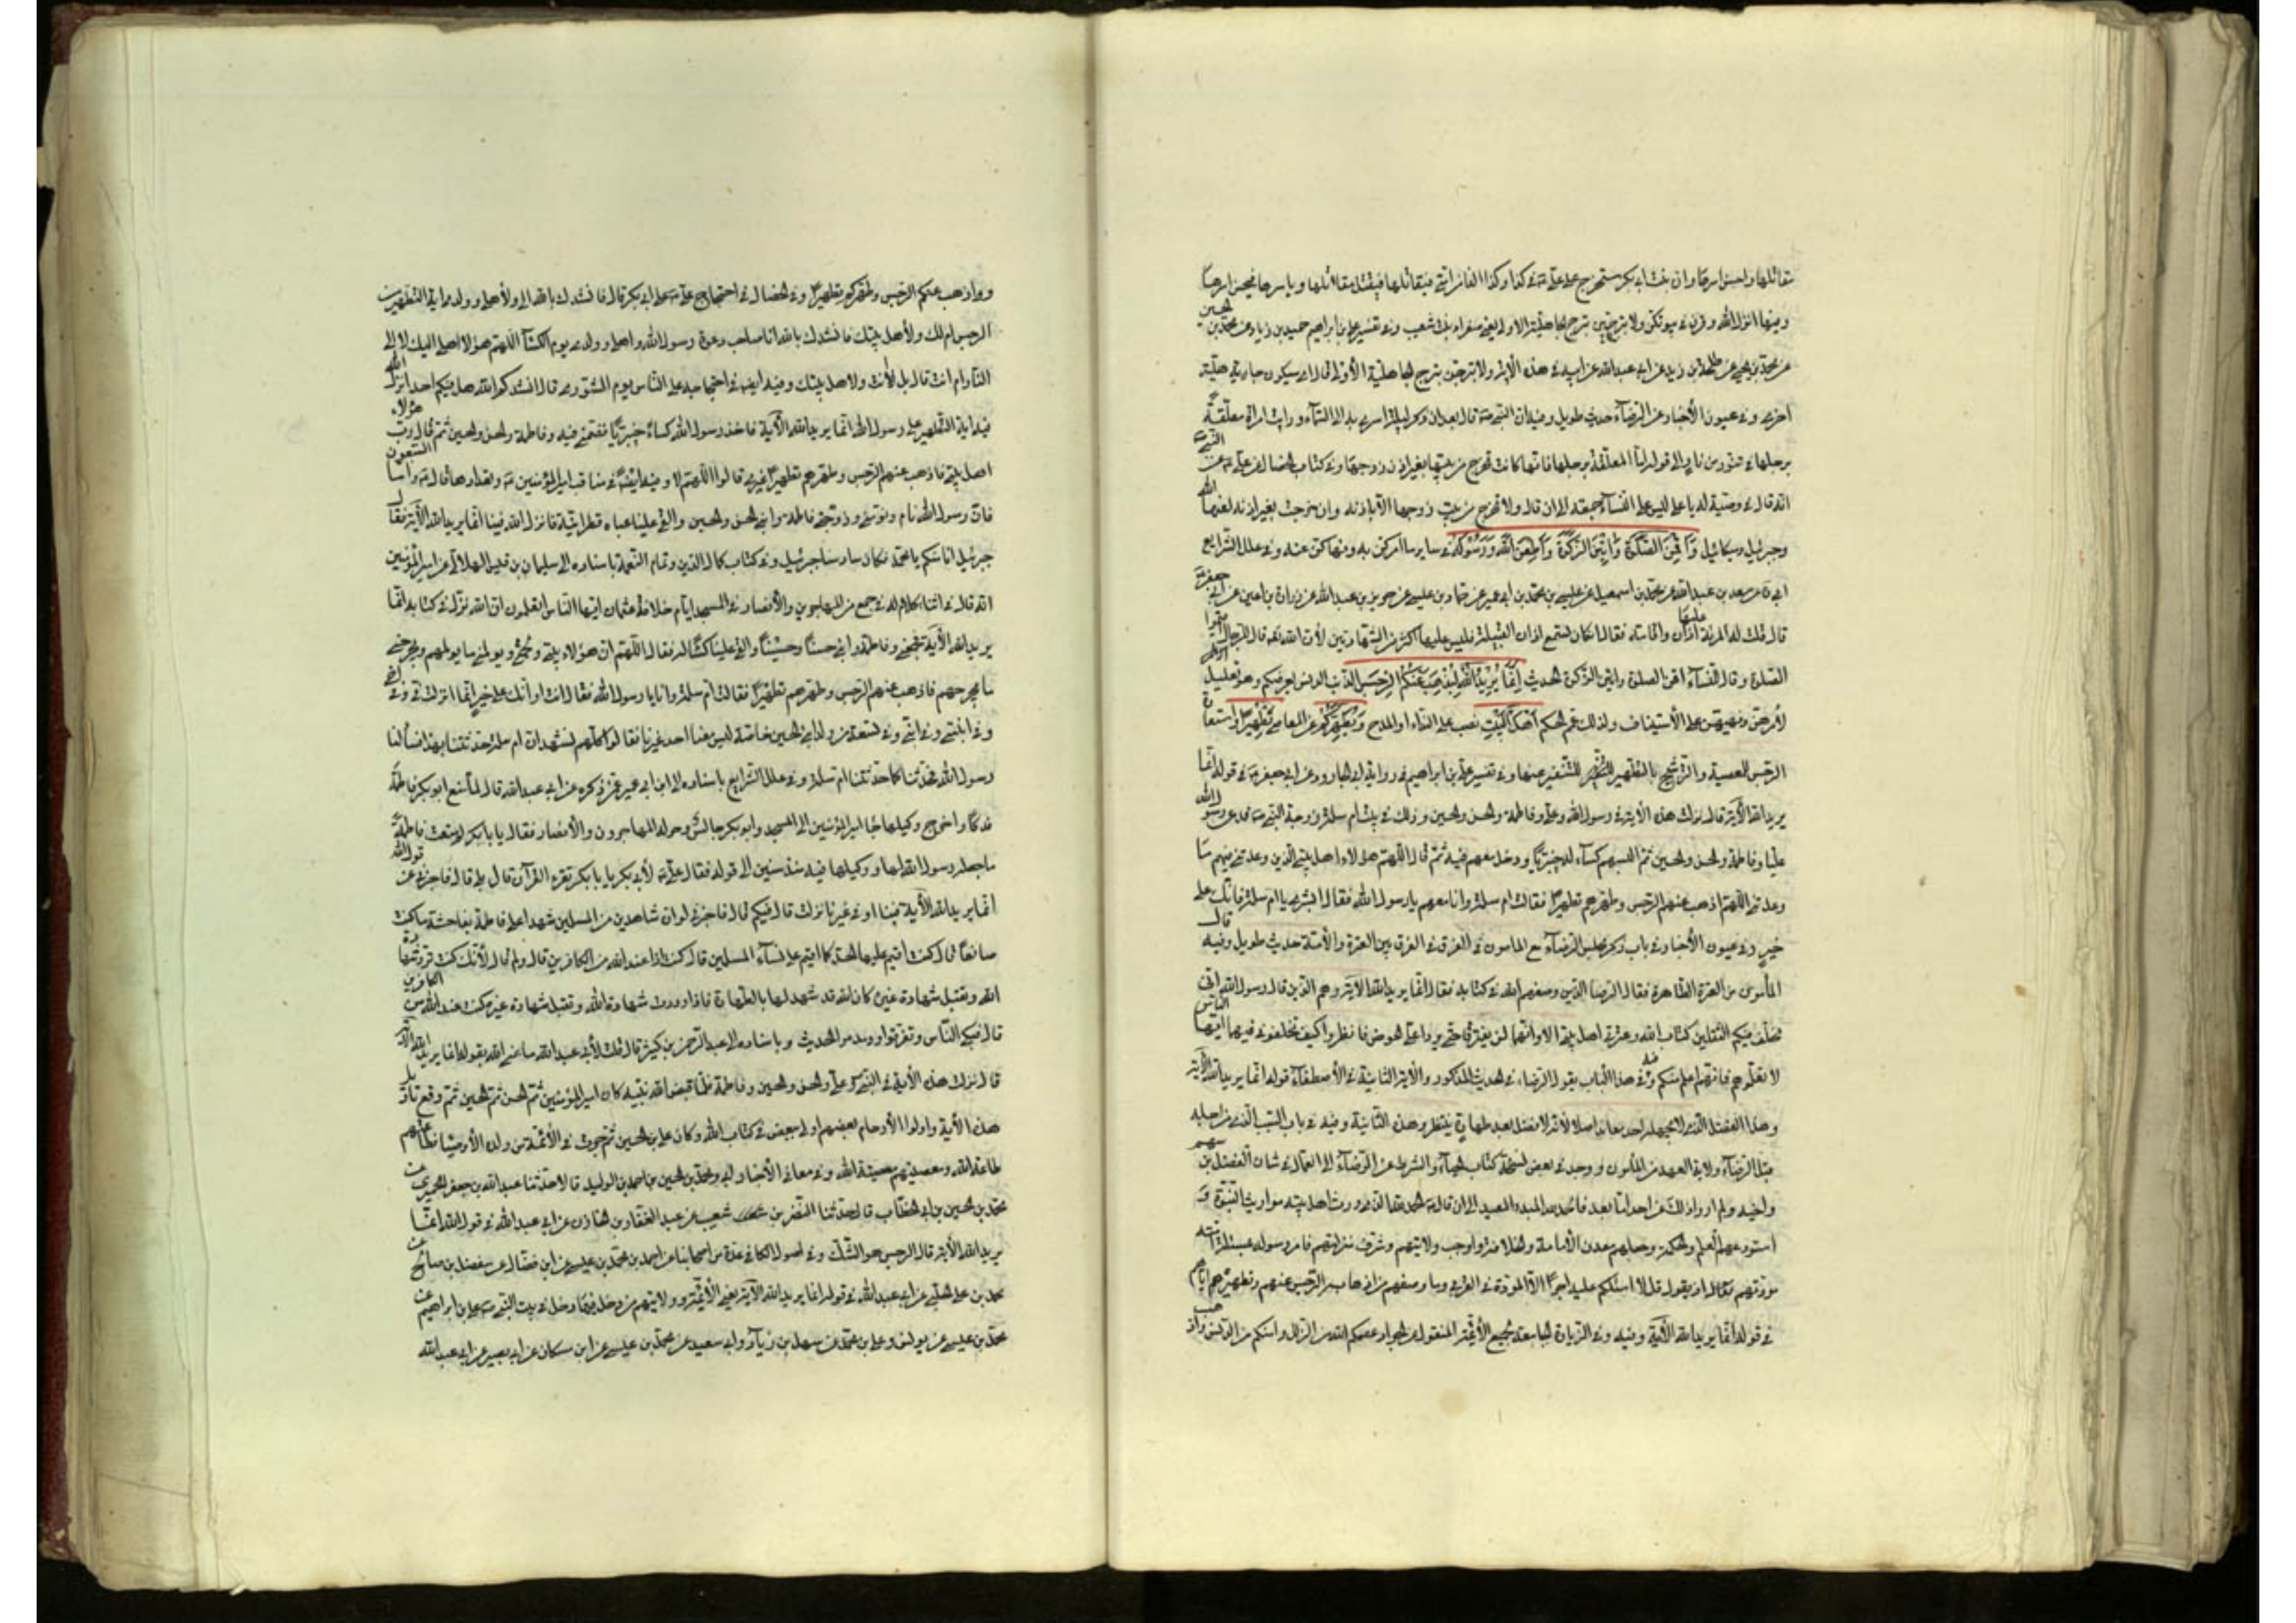 مقاتلها واحسن اسرها وان بنت ابى بكر ستخرج على علىّ فى كذا وكذا الفا من امتى فيقاتلها فيقتل مقاتلها وياسرها فيحسن اسرها
وفيها انزل الله وقرن فى بيوتكن ولا تبرجن تبرج الجاهلية الاولى يعنى صفراء بنت شعيب وفى تفسير على بن ابراهيم حميد بن زياد عن محمد بن الحسين
عن محمد بن يحيى عن طلحة بن زيد عن ابى عبد الله عن ابيه فى هذه الآية ولا تبرجن تبرج الجاهلية الأولى قال اى سيكون جاهلية
اخرى وفى عيون الأخبار عن الرضا حديث طويل وفيه ان النبى قال بعد ان ذكر ليلة اسرى به الى السماء ورايت امراة معلقة
برجلها فى تنور من نار الى قوله اما المعلقة برجلها فانها كانت تخرج من بيتها بغير اذن زوجها وفى كتاب الخصال عن على عن النبى
انه قال فى وصية له يا على ليس على النساء جمعة الى ان قال ولا تخرج من بيت زوجها الا باذنه وان خرجت بغير اذنه لعنها الله
وجبرئيل وميكائيل وَأَقِمْنَ الصَّلَوةَ وَآتِينَ الزَّكَوةَ وَأَطِعْنَ اللَّهَ وَرَسُولَهُ فى ساير ما امركن به ونهاكن عنه وفى علل الشرايع
ابى ره عن سعد بن عبد الله عن محمد بن اسمعيل عن على بن محمد بن ابى عمير عن حماد بن عيسى عن حريز بن عبد الله عن زرارة بن اعين عن ابى جعفر
قال قلت له المرئة عليها اذان واقامة فقال ان كان تسمع اذان القبيلة فليس عليها اكثر من الشهادتين لأن الله قال للرجال اقيموا
الصلوة وقال للنساء اقمن الصلوة واتين الزكوة الحديث إِنَّمَا يُرِيدُ اللَّهُ لِيُذْهِبَ عَنْكُمُ الرِّجْسَ الذنب المدنس لعرضكم وهو تعليل
لأمرهن ونهيهن على الأستيناف ولذلك عمم الحكم أَهْلَ الْبَيْتِ نصب على النداء او المدح وَيُطَهِّرَكُمْ عن المعاصى تَطْهِيرًا واستعارة
الرجس للمعصية والترشيح بالتطهير للتنفير عنها وفى تفسير على بن ابراهيم فى رواية ابى الجارود عن ابى جعفر فى قوله انما
يريد الله الآية قال نزلت هذه الآية فى رسول الله وعلى وفاطمة والحسن والحسين وذلك فى بيت ام سلمة زوجة النبى دعى رسول الله
عليا وفاطمة والحسن والحسين ثم البسهم كساء له خيبريا ودخل معهم فيه ثم قال اللهم هؤلاء اهل بيتى الذين وعدتنى فيهم ما
وعدتنى اللهم اذهب عنهم الرجس وطهرهم تطهيرا فقالت ام سلمة وانا معهم يا رسول الله فقال ابشرى يا ام سلمة فانك على
خير وفى عيون الأخبار فى باب ذكر مجلس الرضا مع المامون فى الفرق بين العترة والأمة حديث طويل وفيه قال
المأمون من العترة الطاهرة فقال الرضا الذين وصفهم الله فى كتابه فقال انما يريد الله الآية وهم الذين قال رسول الله انى
مخلف فيكم الثقلين كتاب الله وعترتى اهل بيتى الا وانهما لن يفترقا حتى يردا على الحوض فانظروا كيف تخلفونى فيهما ايها الناس
لا تعلموهم فانهم اعلم منكم وفى هذا الباب يقول الرضا فى الحديث المذكور والآية الثانية فى الأصطفاء قوله انما يريد الله الآية
وهذا الفضل الذى لا يجهله احد معاند اصلا لأنه لا فضل بعد طهارة ينتظر وهذه الثانية وفيه فى باب السبب الذى من اجله
قبل الرضا ولاية العهد من المأمون ووجدت فى بعض نسخة كتاب الحباء والشرط عن الرضا الى العمال فى شان الفضل بن سهل
واخيه ولم ارو ذلك عن احد اما بعد فالحمد لله المبدء المعيد الى ان قال الحمد لله الذى ورث اهل بيته مواريث النبوة و
استودعهم العلم والحكمة وجعلهم معدن الأمامة والخلافة واوجب ولايتهم وشرف منزلتهم فامر رسوله بمسئلة امته
مودتهم اذ يقول قل لا اسئلكم عليه اجرا الا المودة فى القربى وما وصفهم من اذهاب الرجس عنهم وتطهيره اياهم
فى قوله انما يريد الله الآية وفيه وفى الزيارة الجامعة لجميع الأئمة المنقولة عن الجواد عصمكم الله من الزلل وامنكم من الفتن واذهب
واذهب عنكم الرجس وطهركم تطهيرا وفى الخصال فى احتجاج على على ابى بكر قال فانشدك بالله الى ولأهلى وولدى اية التطهير من
الرجس ام لك ولأهل بيتك فانشدك بالله انا صاحب دعوة رسول الله واهلى وولدى يوم الكساء اللهم هؤلاء اهلى اليك لا الى
النار ام انت قال بل لأنت ولاهل بيتك وفيه ايضا فى احتجاجه على الناس يوم الشورى قال انشدكم الله هل فيكم احد انزل الله
فيه اية التطهير على رسول الله انما يريد الله الآية فاخذ رسول الله كساء خيبريا فضمنى فيه وفاطمة والحسن والحسين ثم قال رب هؤلاء
اهل بيتى فاذهب عنهم الرجس وطهرهم تطهيرا غيرى قالوا اللهم لا وفيه ايضا فى مناقب امير المؤمنين وتعدادها قال واما السبعون
فان رسول الله نام ونومنى وزوجتى فاطمة وابنى الحسن والحسين والقى علينا عباءة قطوانية فانزل الله فينا انما يريد الله الآية فقال
جبرئيل انا منكم يا محمد فكان سادسنا جبرئيل وفى كتاب كمال الدين وتمام النعمة باسناده الى سليمان بن قيس الهلالى عن امير المؤمنين
انه قال فى اثناء كلام له فى جمع من المهاجرين والأنصار فى المسجد ايام خلافة عثمان ايها الناس اتعلمون ان الله نزل فى كتابه انما
يريد الله الآية فجمعنى وفاطمة وابنى حسنا وحسينا والقى علينا كساء له فقال اللهم ان هؤلاء بيتى ولحمتى ويولمنى ما يولمهم ويجرحنى
ما يجرحهم فاذهب عنهم الرجس وطهرهم تطهيرا فقالت ام سلمة وانا يا رسول الله فقال انت او انك على خير انما انزلت فى وفى اخى
وفى ابنتى وفى ابنى وفى تسعة من ولد ابنى الحسين خاصة ليس معنا احد غيرنا فقالوا كلهم نشهد ان ام سلمة حدثتنا بهذا فسألنا
رسول الله فحدثنا كما حدثتنا ام سلمة وفى علل الشرايع باسناده الى ابن ابى عمير عمن ذكره عن ابى عبد الله قال لما منع ابو بكر فاطمة
فدكا واخرج وكيلها جاء امير المؤمنين الى المسجد وابو بكر جالس وحوله المهاجرون والأنصار فقال يا بابكر لم منعت فاطمة
ما جعله رسول الله لها ووكيلها فيه منذ سنين الى قوله فقال على لأبى بكر يا بابكر تقرء القرآن قال بلى قال فاخبرنى عن قول الله
انما يريد الله الآية فينا او فى غيرنا نزلت قال فيكم قال فاخبرنى لو ان شاهدين من المسلمين شهدا على فاطمة بفاحشة ما كنت
صانعا قال كنت اقيم عليها الحد كما اقيم على نساء المسلمين قال كنت اذا عند الله من الكافرين قال ولم قال لأنك كنت ترد شهادة
الله وتقبل شهادة غيره كان الله قد شهد لها بالطهارة فاذا رددت شهادة الله وقبلت شهادة غيره كنت عند الله من الكافرين
قال فبكى الناس وتفرقوا ودمدموا الحديث وباسناده الى عبد الرحمن بن كثير قال قلت لأبى عبد الله ما عنى الله بقوله انما يريد الله الآية
قال نزلت هذه الآية فى النبى وعلى والحسن والحسين وفاطمة فلما قبض الله نبيه كان امير المؤمنين ثم الحسن ثم الحسين ثم وقع تاويل
هذه الآية واولوا الأرحام بعضهم اولى ببعض فى كتاب الله وكان على بن الحسين ثم جرت فى الأئمة من ولده الأوصياء فطاعتهم
طاعة الله ومعصيتهم معصية الله وفى معانى الأخبار ابى ومحمد بن الحسين بن احمد بن الوليد قالا حدثنا عبد الله بن جعفر الحميرى عن
محمد بن الحسين بن ابى الخطاب قال حدثنا النضر بن شعيب عن عبد الغفار بن الجازى عن ابى عبد الله فى قول الله انما
يريد الله الآية قال الرجس هو الشك وفى اصول الكافى عدة من اصحابنا عن احمد بن محمد بن عيسى عن ابن فضال عن مفضل بن صالح عن
محمد بن على الحلبى عن ابى عبد الله فى قوله انما يريد الله الآية يعنى الأئمة وولايتهم من دخل فيها دخل فى بيت النبى على بن ابراهيم عن
محمد بن عيسى عن يونس وعلى بن محمد عن سهل بن زياد ابى سعيد عن محمد بن عيسى عن ابن مسكان عن ابى بصير عن ابى عبد الله